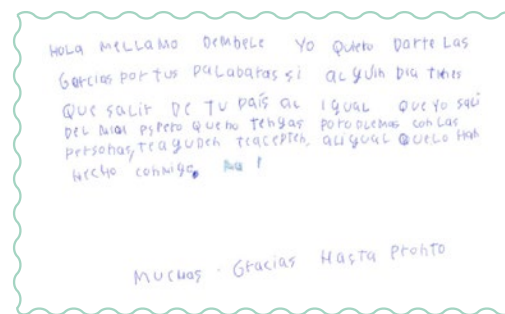 HOLA MELLAMO DEMBELE YO QUIERO DARTE LAS
GARCIAS POR TUS PALABARAS SI ALGUIN DIA TIENES
QUE SALIR DE TU PAÍS AL IGUAL QUE YO SALI
DEL MIO ESPERO QUE NO TENGAS POROBLEMAS CON LAS
PERSONAS, TEAYUDEN TEACEPTEN, ALIGUAL QUELO HAN
HECHO CONMIGO.
MUCHAS GRACIAS HASTA PRONTO